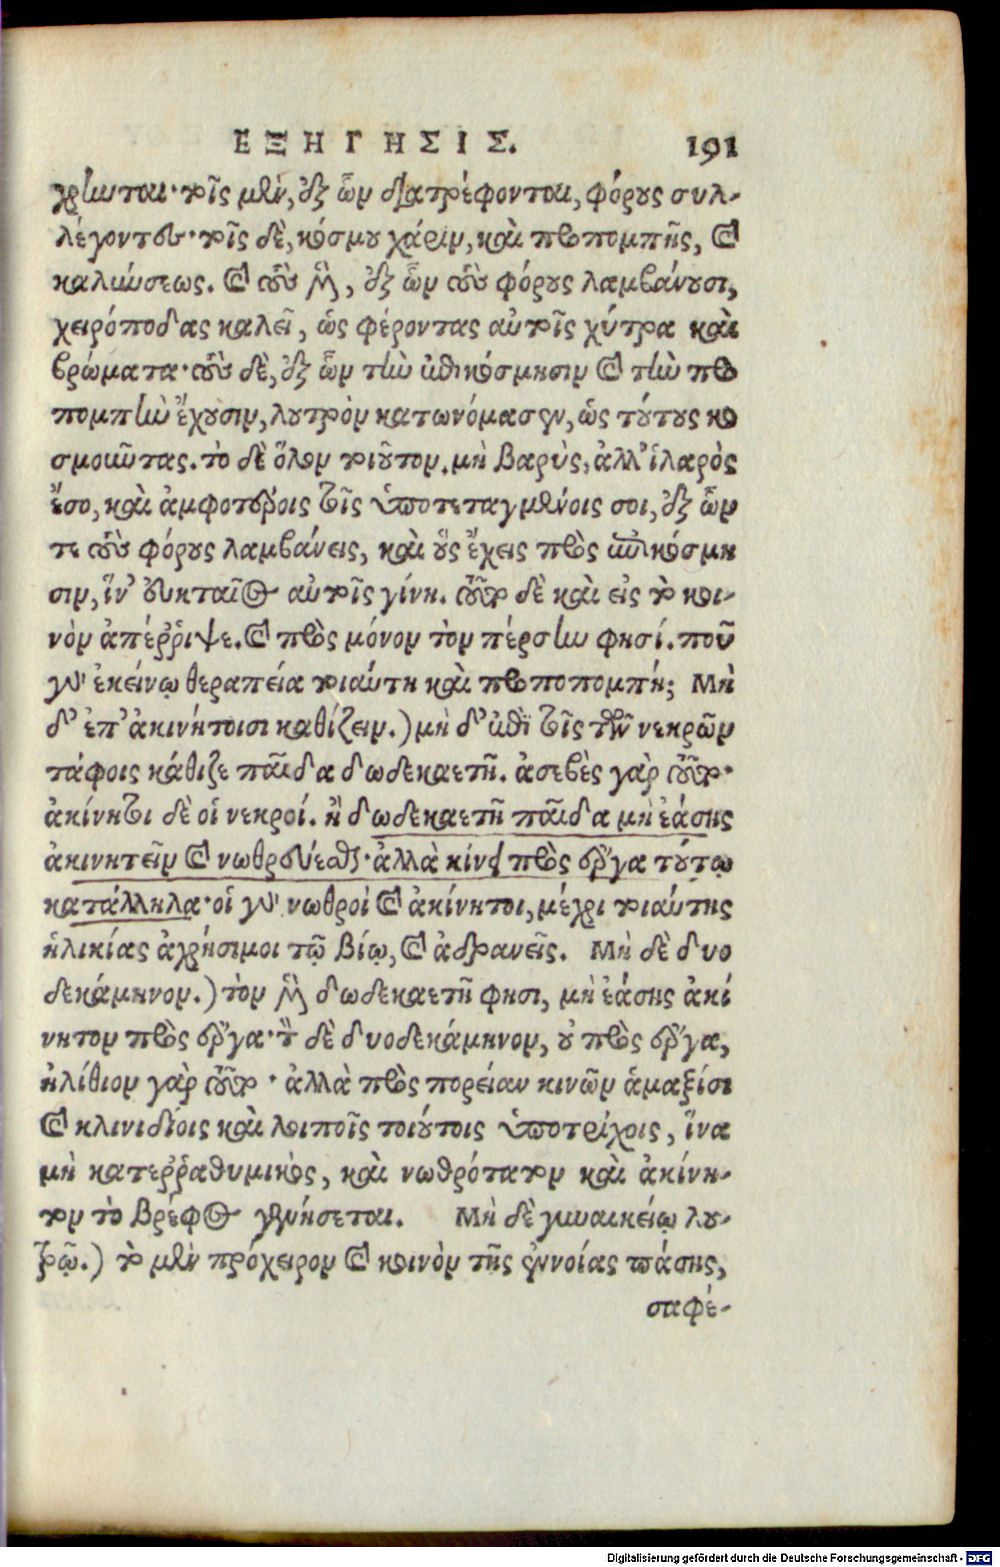 ΕΞΗΓΗΣΙΣ. 191
χρῶνται· τοῖς μὲν, ἐξ ὧν διατρέφονται, φόρους συλ-
λέγοντες· τοῖς δὲ, κόσμου χάριν, καὶ προπομπῆς, καὶ
καλλιώσεως. καὶ τοὺς μὲν, ἐξ ὧν τοὺς φόρους λαμβάνουσι,
χειρόποδας καλεῖ, ὡς φέροντας αὐτοῖς χύτρα καὶ
βρώματα· τοὺς δὲ, ἐξ ὧν τὴν ἐπικόσμησιν καὶ τὴν προ
πομπὴν ἔχουσιν, λουτρὸν κατωνόμασεν, ὡς τούτους κο
σμοιῦτας. τὸ δὲ ὅλον τοιοῦτον. μὴ βαρὺς, ἀλλ' ἱλαρὸς
ἔσο, καὶ ἀμφοτέροις τοῖς ὑποτεταγμένοις σοι, ἐξ ὧν
τε τοὺς φόρους λαμβάνεις, καὶ οὓς ἔχεις πρὸς ἐπικόσμη
σιν, ἵν' εὐκταῖος αὐτοῖς γίνῃ. τοῦτο δὲ καὶ εἰς τὸ κοι-
νὸν ἀπέῤῥιψε. καὶ πρὸς μόνον τὸν πέρσην φησί. ποῦ
γὰρ ἐκείνῳ θεραπεία τοιαύτη καὶ προποπομπή; Μὴ
δ' ἐπ' ἀκινήτοισι καθίζειν.) μὴ δ' ἐπὶ τοῖς τῶν νεκρῶν
τάφοις κάθιζε παῖδα δωδεκαετῆ. ἀσεβὲς γὰρ τοῦτο·
ἀκίνητοι δὲ οἱ νεκροί. ἢ δωδεκαετῆ παῖδα μὴ ἐάσῃς
ἀκινητεῖν καὶ νωθρεύεσθαι· ἀλλὰ κίνει πρὸς ἔργα τούτῳ
κατάλληλα· οἱ γὰρ νωθροὶ καὶ ἀκίνητοι, μέχρι τοιαύτης
ἡλικίας ἀχρήσιμοι τῷ βίῳ, καὶ ἀδρανεῖς. Μὴ δὲ δυο
δεκάμηνον.) τὸν μὲν δωδεκαετῆ φησι, μὴ ἐάσῃς ἀκί
νητον πρὸς ἔργα· τὸν δὲ δυοδεκάμηνον, οὐ πρὸς ἔργα,
ἠλίθιον γὰρ τοῦτο· ἀλλὰ πρὸς πορείαν κινῶν ἁμαξίσι
καὶ κλινιδίοις καὶ λοιποῖς τοιούτοις ὑποτρόχοις, ἵνα
μὴ κατεῤῥαθυμικὸς, καὶ νωθρότατον καὶ ἀκίνη-
τον τὸ βρέφος γενήσεται. Μὴ δὲ γυναικείῳ λου-
τρῷ.) τὸ μὲν πρόχειρον καὶ κοινὸν τῆς ἐννοίας πάσης,
σαφέ-
Digitalisierung gefördert durch die Deutsche Forschungsgemeinschaft - DFG